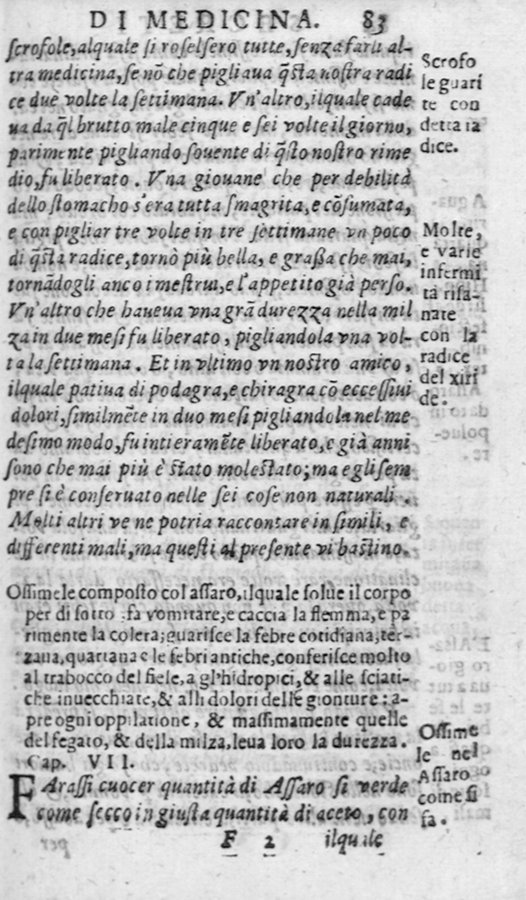 DI MEDICINA. 83
ſcrofole, alquale ſi roſelſero tutte, ſenza farli al-
tra medicina, ſe nõ che pigliaua q̃sta noſtra radi
ce due volte la ſettimana. Vn'altro, ilquale cade
ua da q̃l brutto male cinque e ſei volte il giorno,
parimente pigliando ſouente di q̃ſto noſtro rime
dio, fu liberato. Vna giouane che per debilità
dello ſtomacho s'era tutta ſmagrita, e cõſumata,
e con pigliar tre volte in tre ſettimane vn poco
di q̃ſta radice, tornò più bella, e graſſa che mai,
tornãdogli anco i meſtrui, e l'appetito già perſo.
Vn'altro che haueua vna grã durezza nella mil
za in due meſi fu liberato, pigliandola vna vol-
ta la ſettimana. Et in vltimo vn noſtro amico,
ilquale patiua di podagra, e chiragra cõ ecceſſiui
dolori, ſimilmẽte in duo meſi pigliandola nel me
deſimo modo, fu intieramẽte liberato, e già anni
ſono che mai più è ſtato moleſtato; ma egli ſem
pre ſi è conſeruato nelle ſei coſe non naturali.
Molti altri ve ne potria raccontare in ſimili, e
differenti mali, ma queſti al preſente vi baſtino.
Scrofo
le guari
te con
detta ra
dice.
Molte,
e varie
infermi
tà riſa-
nate
con la
radice
del xiri
de.
Oſſimele compoſto col aſſaro, ilquale ſolue il corpo
per di ſotto fa vomitare, e caccia la flemma, e pa
rimente la colera; guariſce la febre cotidiana, ter-
zana, quartana e le febri antiche, conferiſce molto
al trabocco del fiele, a gl'hidropici, & alle ſciati-
che inuecchiate, & alli dolori delle gionture: a-
pre ogni oppilatione, & maſſimamente quelle
del fegato, & della milza, leua loro la durezza.
Cap. VII.
FAraſſi cuocer quantità di Aſſaro ſi verde
come ſecco in giuſta quantità di aceto, con
Oſſime
le nel
Aſſaro
come ſi
fa.
F 2 ilquale